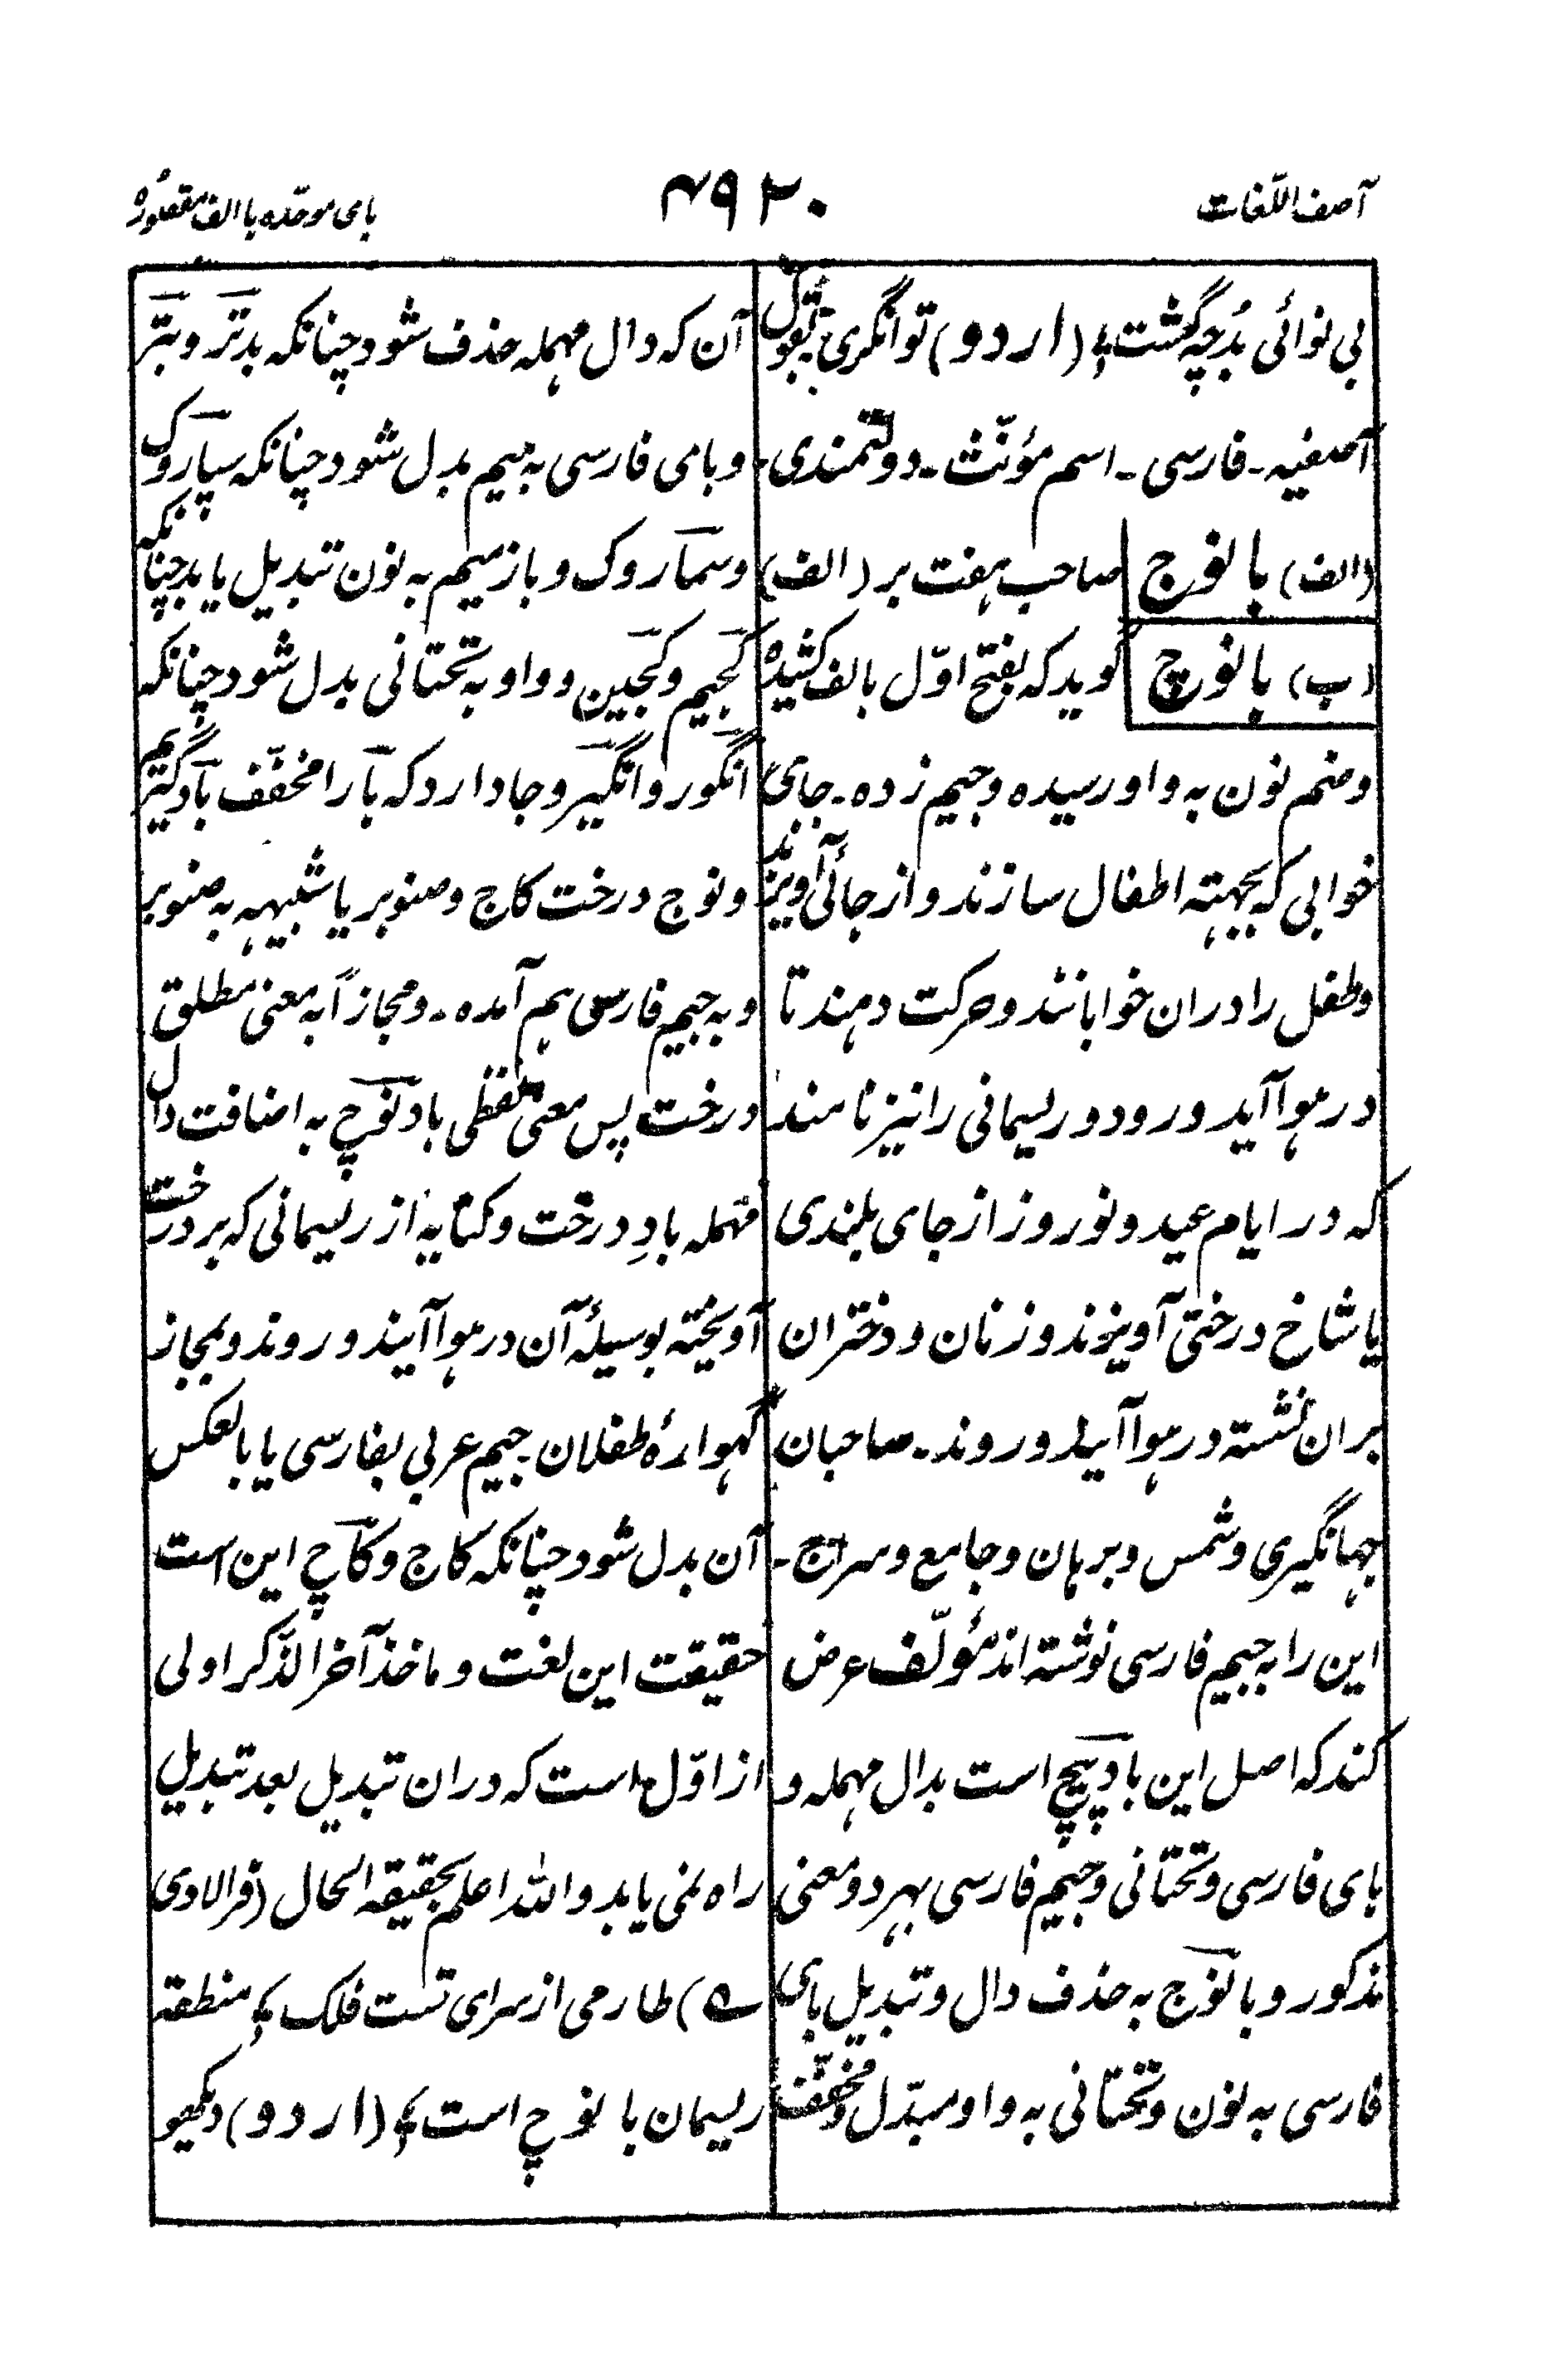 آصف اللغات
۴۹۲۰
بای موحّده با الف مقصوره
بی نوائی بُرجِ گشت ؛ (اردو) توانگری بقول
آصفیه ۔ فارسی ۔ اسم مؤنّث ۔ دولتمندی ۔
(الف) بانوج صاحب هفت بر (الف)
(ب) بانوچ گوید که بفتح اوّل بالف کشیده
وضم نون به واو رسیده و جیم زده ۔ جای
خوابی که بجهته اطفال سازند و از جائی آویزند
و طفل را دران خوابانند و حرکت دهند تا
در هوا آید و رود و ریسمانی را نیز نامند
که در ایام عید و نوروز از جای بلندی
یا شاخ درختی آویزند و زنان و دختران
بران نشسته در هوا آیند و روند ۔ صاحبان
جهانگیری و شمس و برهان و جامع و سراج ۔
این را به جیم فارسی نوشته اند مؤلّف عرض
کند که اصل این بادپیچ است بدال مهمله و
بای فارسی و تحتانی و جیم فارسی بهر دو معنی
مذکور و بانوج به حذف دال و تبدیل بای
فارسی به نون و تحتانی به واو مبدّل و مخفّف
آن که دال مهمله حذف شود چنانکه بدتر و بتر
و بای فارسی به میم بدل شود چنانکه سپاروک
و سماروک و باز میم به نون تبدیل یابد چنانکه
کجیم و کجین و واو به تحتانی بدل شود چنانکه
انگور و انگیر و جا دارد که با را مخفّف باد گیریم
و نوج درخت کاج و صنوبر یا شبیهه به صنوبر
و به جیم فارسی هم آمده ۔ و مجازاً به معنی مطلق
درخت پس معنی لفظی باد نوچ به اضافت دال
مهمله بادِ درخت و کنایه از ریسمانی که بر درخت
آویخته بوسیلۀ آن در هوا آیند و روند و بمجاز
گهوارۀ طفلان ۔ جیم عربی بفارسی یا بالعکس
آن بدل شود چنانکه کاج و کاچ این است
حقیقت این لغت و ماخذ آخر الذّکر اولی
از اوّل است که دران تبدیل بعد تبدیل
راه نمی یابد و الله اعلم بحقیقه الحال (فرالاوی
ے) طارمی از سرای تست فلک ؛ منطقه
ریسمان بانوچ است ؛ (اردو) دیکھو